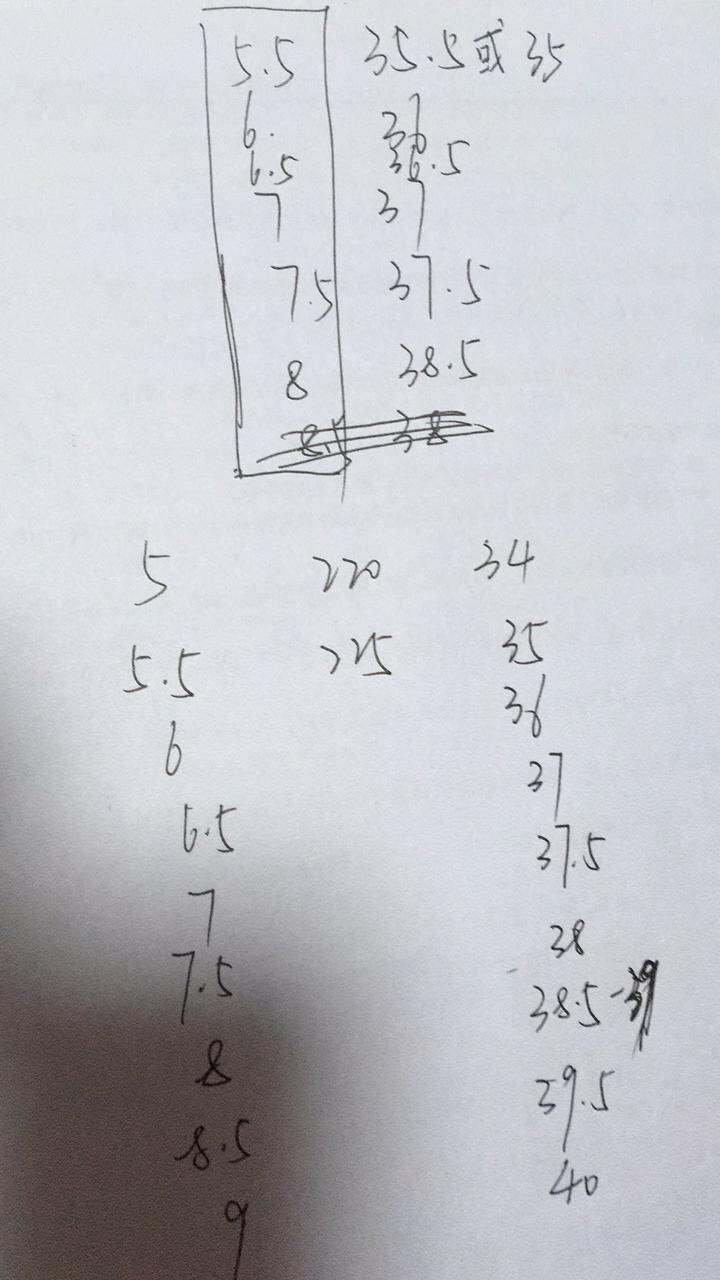 5.5 35.5或35
6. 36
6.5 36.5
7 37
7.5 37.5
8 38.5
8.5 38
5 220 34
5.5 225 35
6 36
6.5 37
7 37.5
7.5 38
8 38.5-39
8.5 39.5
9 40